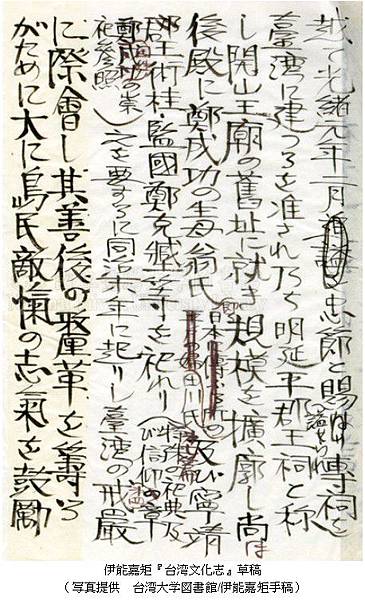 越て光緒元年一月忠節と賜はり専祠を
臺湾に建つるを准され乃ち明延平郡王祠と称
し開山王廟の舊址に就き規模を擴廓し尚は
後殿に鄭成功の母翁氏及び寧靖
郡王術桂・監國鄭克𡒉等を祀れり
之を要するに同治末年に起りし臺湾の戒嚴
に際會し其善後の釐革を籌る
がために大に島民敵愾の志氣を鼓勵
伊能嘉矩『台湾文化志』草稿
（写真提供　台湾大学図書館/伊能嘉矩手稿）